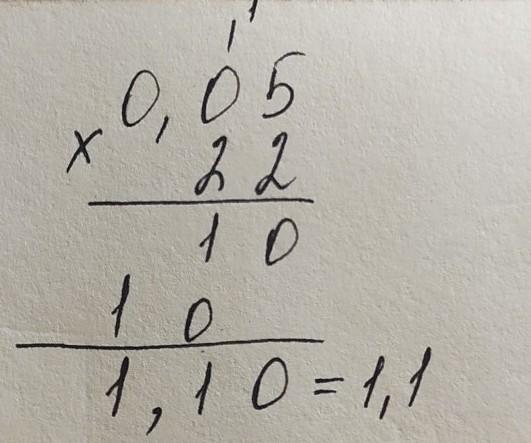 1 1
0,05
x 22
10
10
1,10 = 1,1